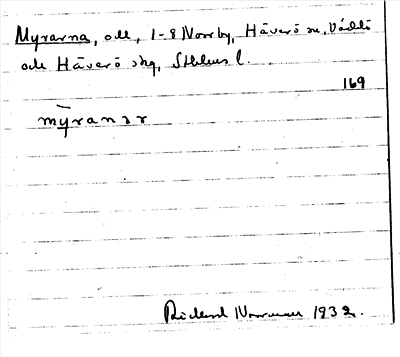 Myrarna, old, 1-8 Norrby, Häverö sn, Väddö
och Häverö skg, Sthlms l.
169
mȳranɜr
Rickard Norrman 1932.